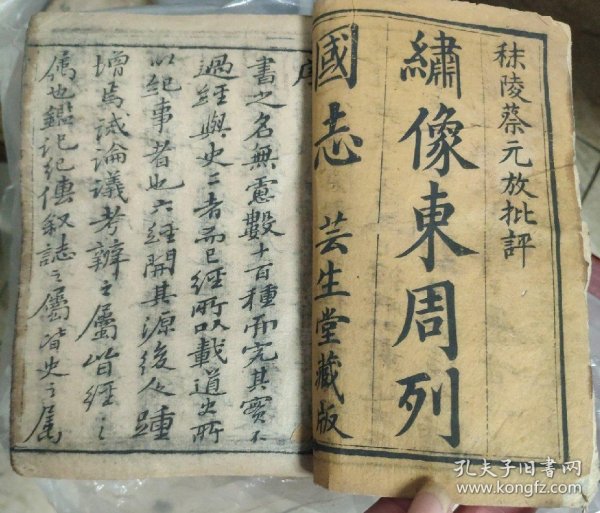 秣陵蔡元放批評
繡像東周列
國志
芸生堂藏版
序
書之名無慮數十百種而究其實不
過經與史二者而已經所以載道史所
以紀事者也六經開其源後人踵
增焉誡論議考辨之屬皆經之
屬也鑑記紀傳叙誌之屬皆史之屬
孔夫子旧书网
www.kongfz.com